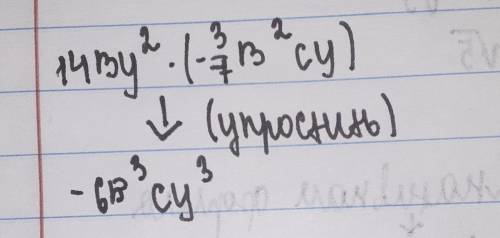 14By² · (-3/7 B²cy)
↓ (упростить)
-6B³cy³